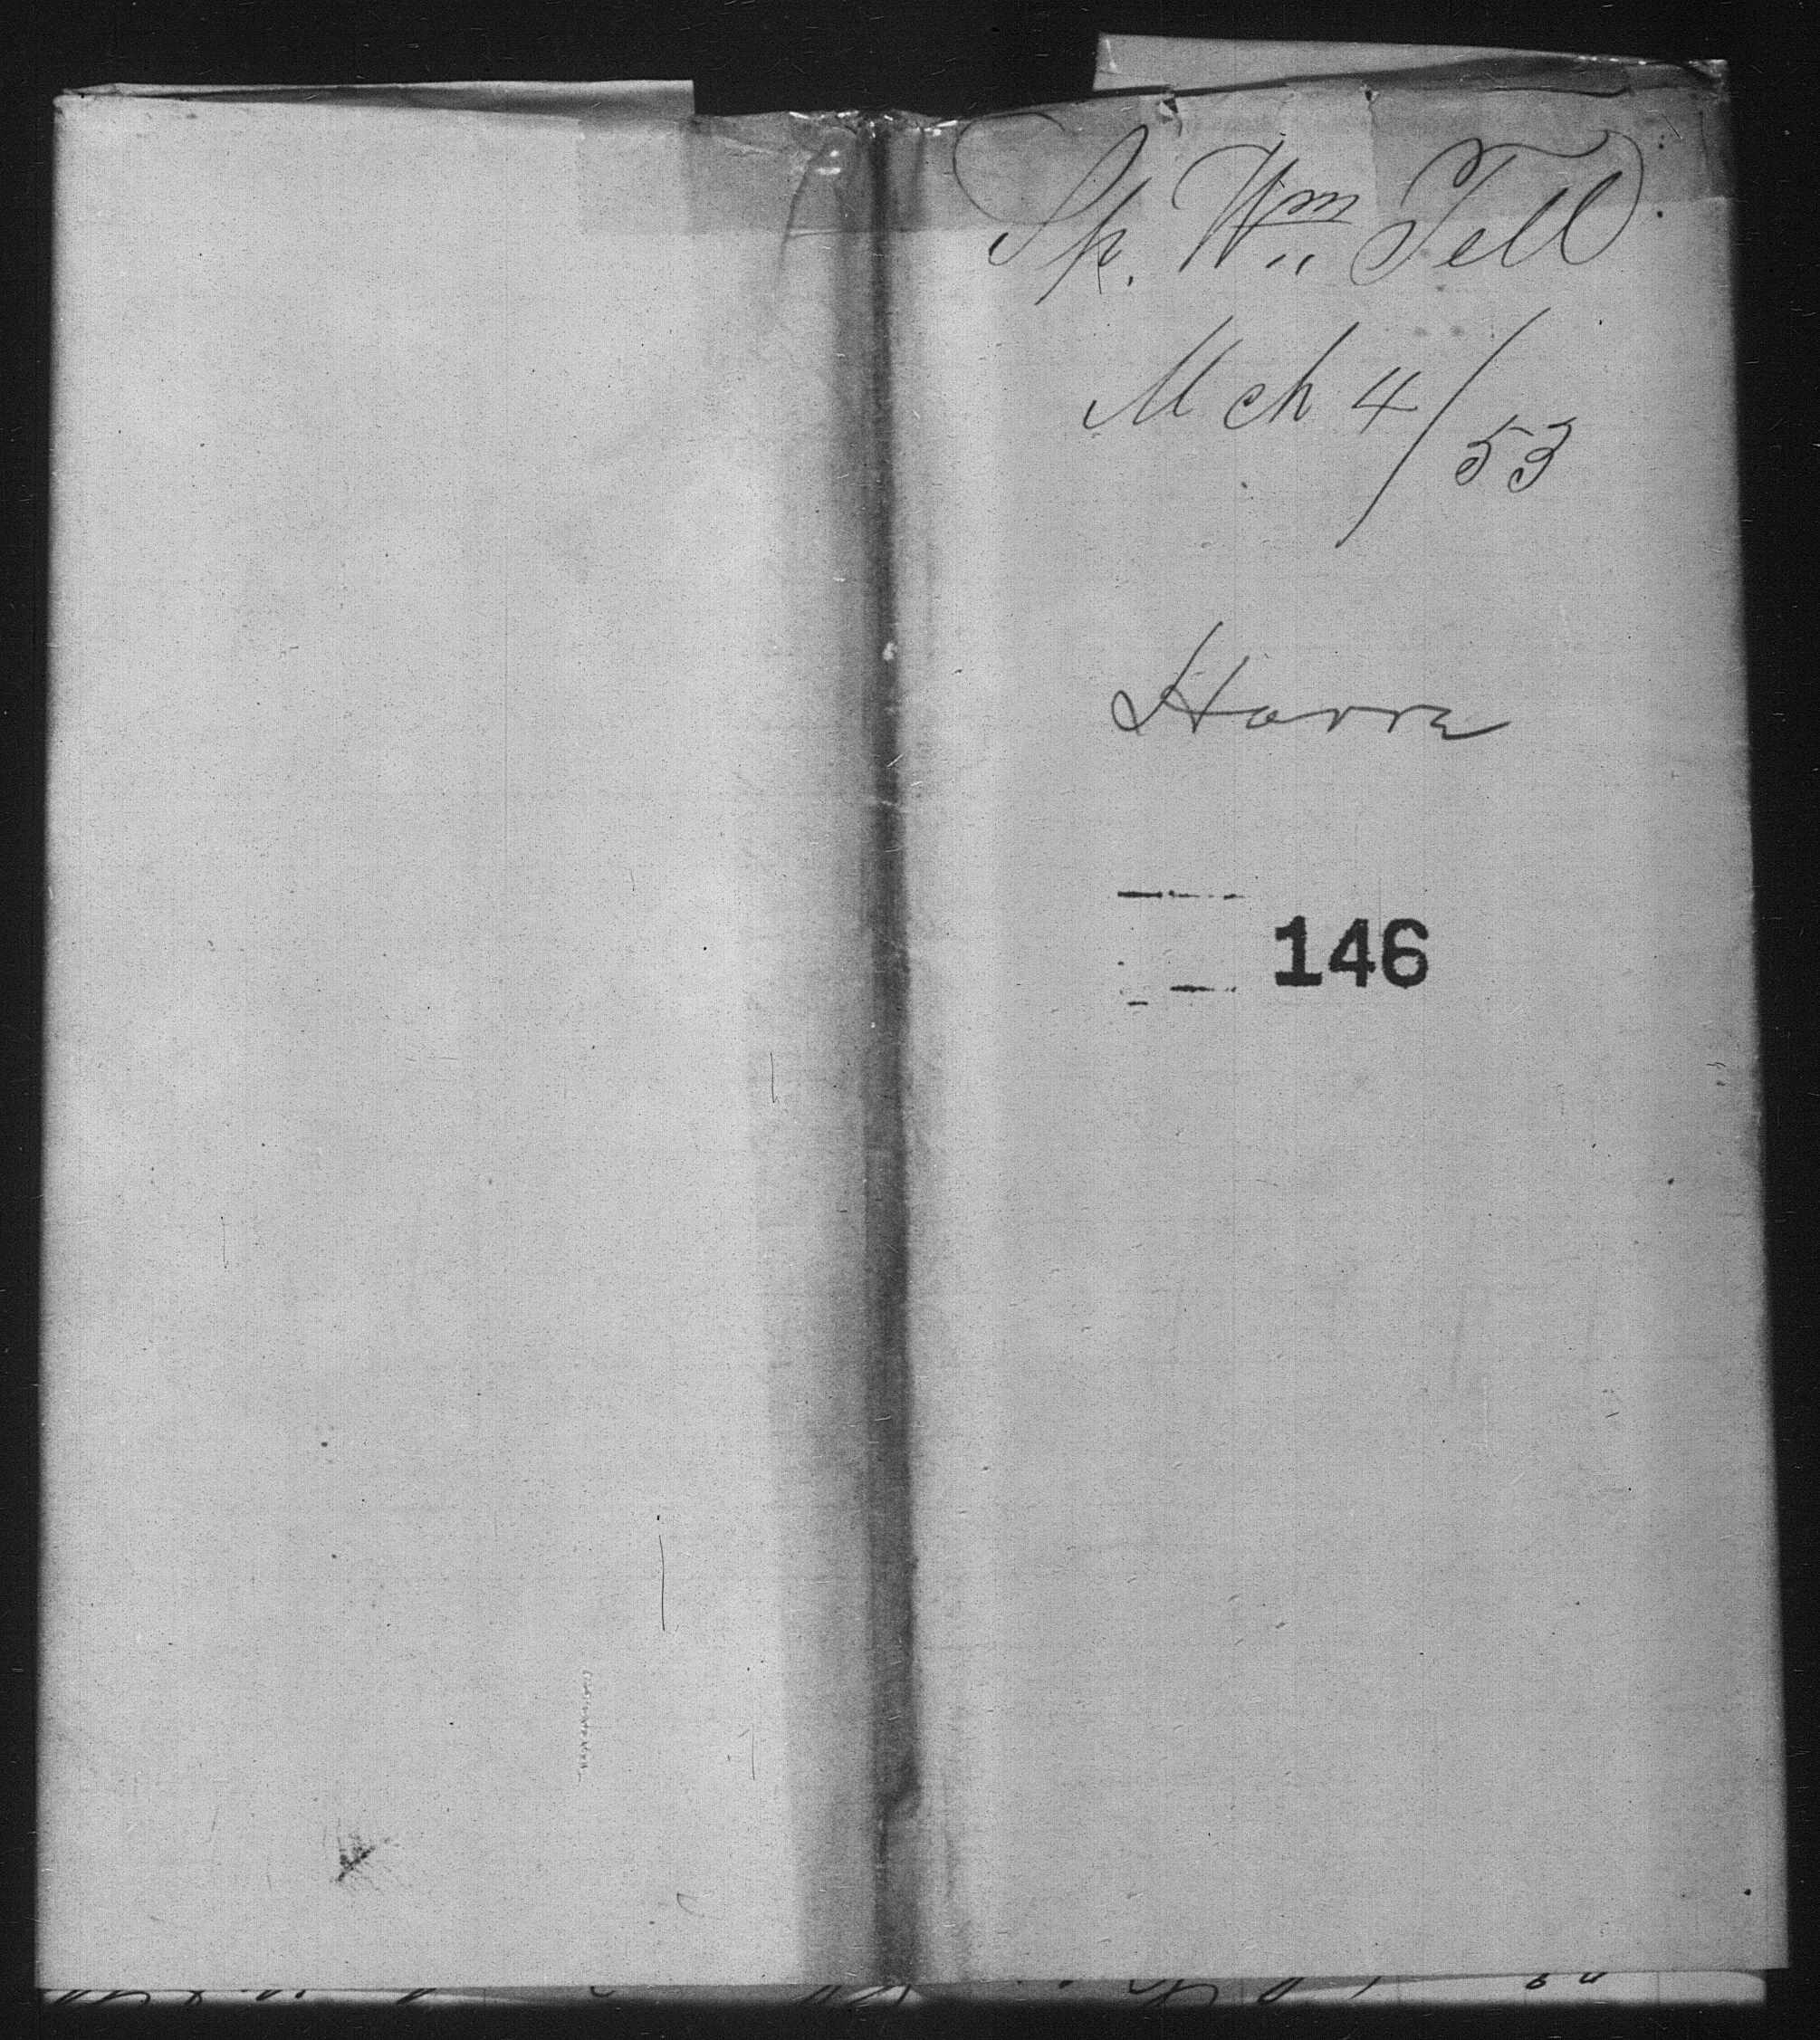 Sh. Wm Tell
Mch 4/53
Havre
146